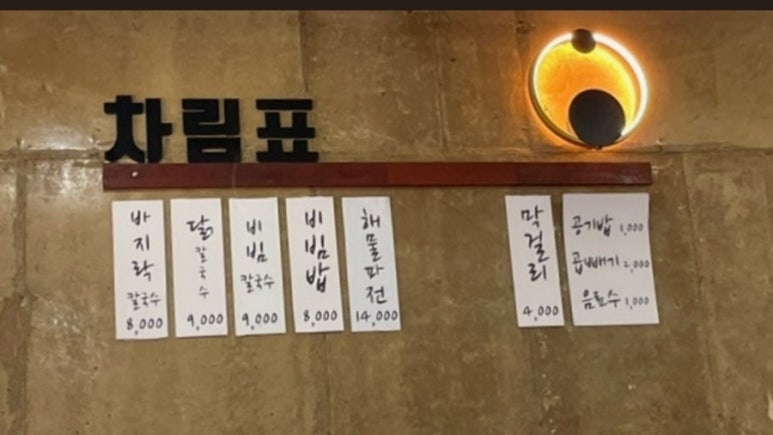 차림표
바지락
칼국수
8,000
닭
칼국수
9,000
비빔
칼국수
9,000
비빔밥
8,000
해물파전
14,000
막걸리
4,000
공기밥 1,000
곱빼기 2,000
음료수 1,000